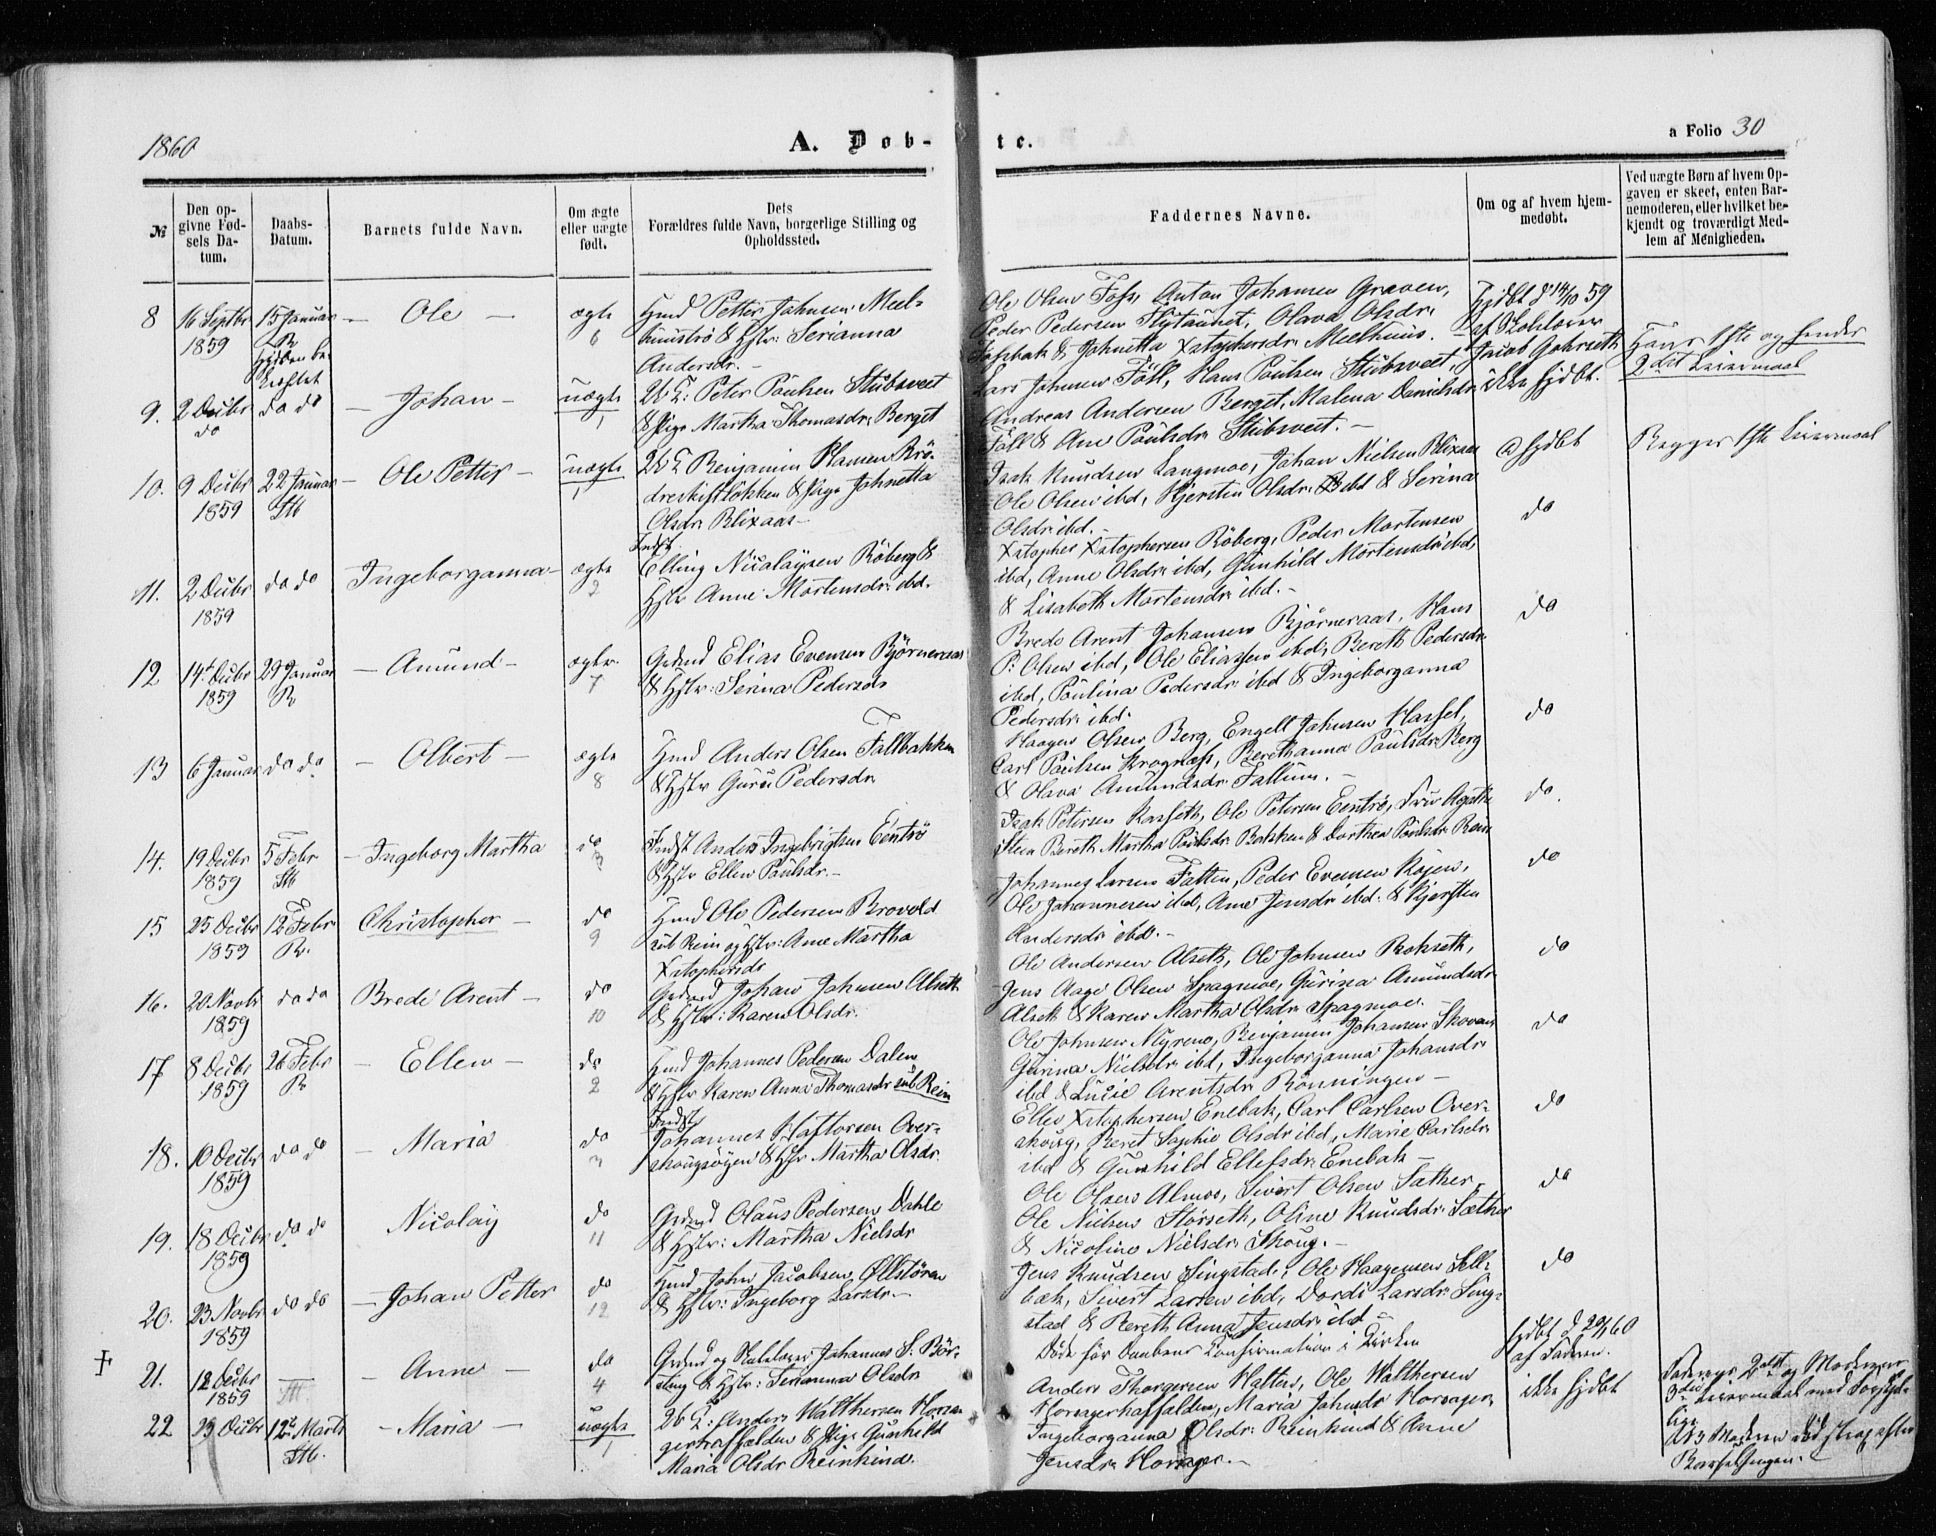 1860
A. Dob-
te.
a Folio 30
№
Den op-
givne Fød-
sels Da-
tum.
Daabs-
Datum.
Barnets fulde Navn.
Om ægte
eller uægte
født.
Dets
Forældres fulde Navn, borgerlige Stilling og
Opholdssted.
Faddernes Navne.
Om og af hvem hjem-
medøbt.
Ved uægte Børn af hvem Op-
gaven er skeet, enten Bar-
nemoderen, eller hvilket be-
kjendt og troværdigt Med-
lem af Menigheden.
8
16 Septbr
1859
15 Januar
R
Ole
ægte
6
Hmd Petter Johnsen Meel-
& Hstr: Serianna
Andersdr.
Ole Olsen Foss, Anton Johansen Graven,
Peder Pedersen Olava Olsdr.
& Johnetta Xstophersdr. Meelhuus.
Hjdbt d 14/10 59
af Skolelærer
Jacob Gahrseth
9.
2 Decbr
do
do do
Johan
uægte
1
Peter Paulsen Stubsveet
& Pige Martha Thomasdr. Berget
Lars Johnsen Föll, Hans Paulsen Stubsveet,
Andreas Andersen Berget, Malena Danielsdr.
Föll & Ane Paulsdr. Stubsveet.
ikke hjdbt.
Hans 1ste og hendes
2det Leiermaal
10.
9 Decbr
1859
22 Januar
St
Ole Petter
uægte
1
Benjamin Hansen Rö-
& Pige Johnetta
Olsdr. Blixaas
Isak Knudsen Langmoe, Johan Nielsen Blixaas
Ole Olsen ibd, Kjersten Olsdr. ibd & Serina
Olsdr. ibd.
hjdbt
Begges 1ste Leiermaal
11.
2 Decbr
1859
do do
Ingeborganna
ægte
2
Indst
Elling Nicolaysen Röberg &
Hstr Anne Mortensdr. ibd.
Xstopher Xstophersen Röberg, Peder Mortensen
ibd, Anne Olsdr. ibd, Gunhild Mortensdr. ibd,
& Lisabeth Mortensdr. ibd.
do
12
14de Decbr
1859
29 Januar
R
Amund
ægte.
7
Grdmd Elias Evensen Bjørneraas
& Hstr: Serina Pedersdr
Brede Arent Johansen Bjørneraas, Hans
P: Olsen ibd, Ole Eliassen ibd, Bereth Pedersdr.
ibd, Paulina Pedersdr. ibd & Ingeborganna
Pedersdr. ibd.
do
13
6 Januar
do do
Olbert
ægte
8
Hmd Anders Olsen Fallbakken
& Hstr Guru Pedersdr.
Haagen Olsen Berg, Engelt Johnsen Hassel,
Carl Paulsen Krognæss, Berethanna Paulsdr. Berg
& Olava Amundsdr. Fallin.
do
14.
19 Decbr
1859
5 Febr
St
Ingeborg Martha
do
3
Indst Anders Ingebrigtsen Eentrö
& Hstr Ellen Paulsdr.
Isak Petersen Kasseth, Ole Petersen Eentrö,
Stein Bereth Martha Paulsdr. Bakken & Dorthea Paulsdr. Rein
do
15
25 Decbr
1859
12 Febr
R.
Christopher
do
9
Hmd Ole Pedersen Brovold
sub Rein og Hstr: Ane Martha
Xstophersdr
Johannes Larsen Fatten, Peder Evensen Röjen,
Ole Johannesen ibd, Ane Jensdr. ibd. & Kjersten
Andersdr ibd.
do
16.
20 Novbr
1859
do do
Brede Arent
do
10
Grdmd Johan Johnsen Alseth
& Hstr: Karen Olsdr.
Ole Andersen Alseth, Ole Johnsen Rokseth,
Jens Aage Olsen Spagmoe, Gurina Amundsdr.
Alseth & Karen Martha Olsdr. Spagmoe.
do
17
8 Decbr
1859
26 Febr
R
Ellen
do
2
Hmd Johannes Pedersen Dalen
& Hstr Karen Anna Thomasdr sub Rein
Ole Johnsen Myrene, Benjamin Johansen Skovaas
Gurina Nielsdr ibd, Ingeborganna Johansdr.
ibd & Lucie Arentsdr. Rönningen
do
18.
10 Decbr
1859
do do
Maria
do
3
Indst
Johannes Haftorsen Over-
skougsöyen & Hstr Martha Olsdr.
Ellev Xstophersen Enebak, Carl Carlsen Over-
skoug, Beret Sophie Olsdr. ibd, Marie Carlsdr.
ibd & Gunhild Ellefsdr. Enebak
do
19.
18 Decbr
1859
do do
Nicolay
do
11
Grdmd Olaus Pedersen Dahle
& Hstr: Martha Nielsdr
Ole Olsen Almos, Sivert Olsen Sæther
Ole Nielsen Störseth, Oline Knudsdr. Sæther
& Nicoline Nielsdr. Skoug.
do
20.
23 Novbr
1859
do do
Johan Petter
do
12
Hmd John Jacobsen Øllstören
& Hstr: Ingeborg Larsdr.
Jens Knudsen Singstad, Ole Haagensen Sell-
bæk, Sivert Larsen ibd, Dordi Larsdr. Sing-
stad & Bereth Anna Jensdr. ibd
do
21.
12 Decbr
1859
St.
Anne
do
4
Grdmd og Skolelærer Johannes S. Bör-
sting & Hstr: Serianna Olsdr
Döde för Daabens Confirmation i Kirken
hjdbt d 29/1 60
af Faderen.
22
23 Decbr
12te Marts
St.
Maria
uægte
1
Anders Walthersen Horsa-
gerhaffalden & Pige Gunhild
Maria Olsdr Reinkind.
Anders Thorgersen Hatten, Ole Walthersen
Horsagerhaffalden, Maria Johnsdr. Horsager,
Ingeborganna Olsdr. Reinkind & Anne
Jensdr. Horsager.
ikke hjdbt
Faderens 2det og Moderens
3die Leiermaal med Forskjel-
lige.
NB Moderen död strax efter
Barselsengen.